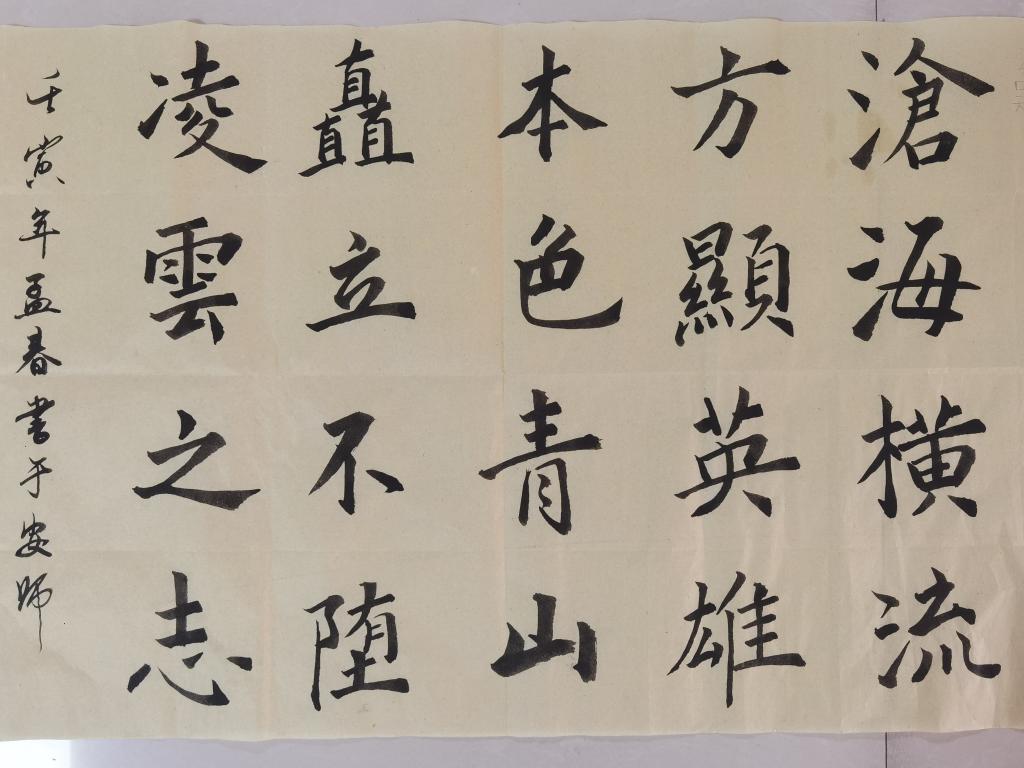 滄海横流
方顯英雄
本色青山
矗立不堕
凌雲之志
壬寅年孟春書于安師